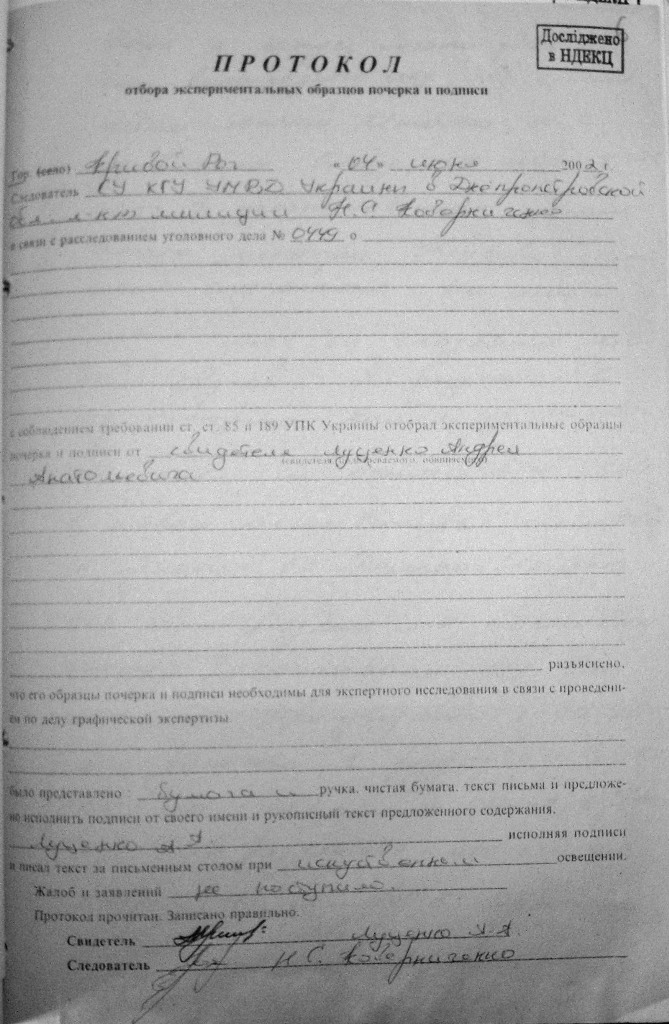 Досліджено
в НДЕКЦ
ПРОТОКОЛ
отбора экспериментальных образцов почерка и подписи
Гор. (село) Кривой Рог «04» июня 2002 г.
Следователь СУ КГУ УМВД Украины в Днепропетровской
обл. л-т милиции Н.С. Коварниченко
в связи с расследованием уголовного дела № 0449 о
с соблюдением требований ст. ст. 85 и 189 УПК Украины отобрал экспериментальные образцы
почерка и подписи от свидетеля Луценко Андрея
(свидетеля, подозреваемого, обвиняемого)
Анатольевича
разъяснено,
что его образцы почерка и подписи необходимы для экспертного исследования в связи с проведени-
ем по делу графической экспертизы.
было представлено бумага и ручка, чистая бумага, текст письма и предложе-
но исполнить подписи от своего имени и рукописный текст предложенного содержания.
Луценко А.А. исполняя подписи
и писал текст за письменным столом при искуственном освещении.
Жалоб и заявлений не поступило.
Протокол прочитан. Записано правильно.
Свидетель Луценко А.А.
Следователь Н.С. Коварниченко